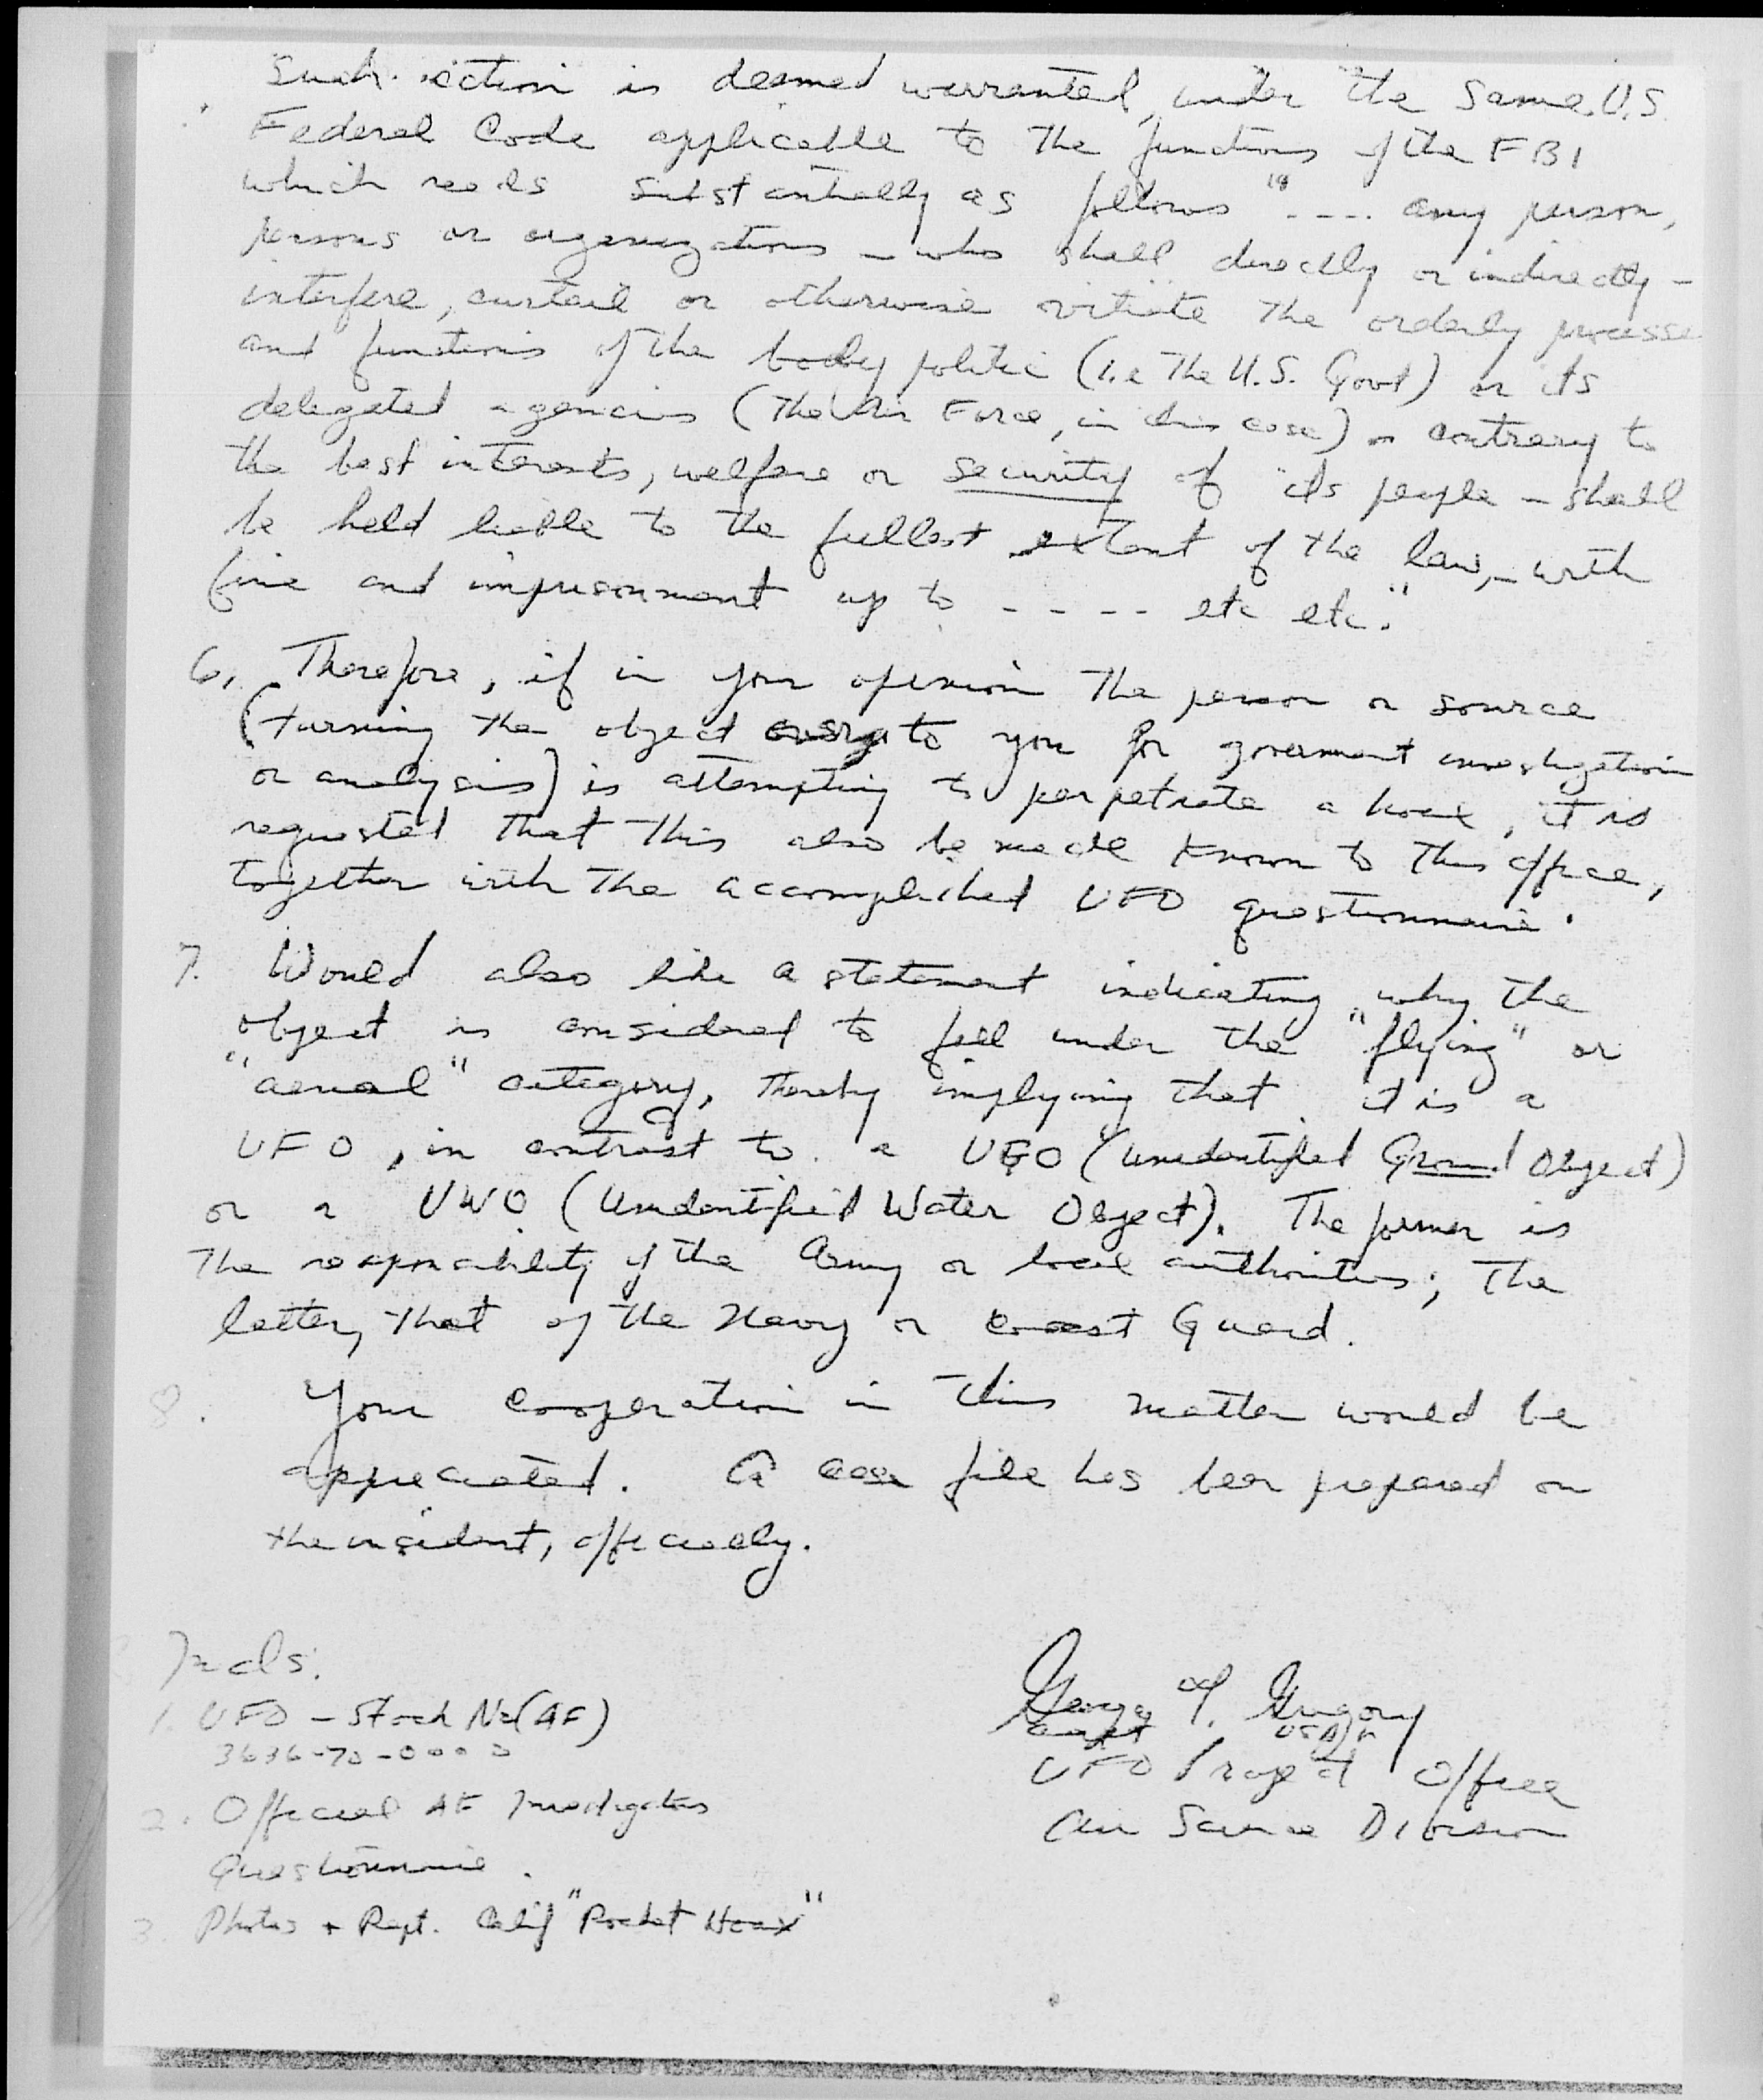 Such action is deemed warranted, under the same U.S.
Federal Code applicable to the functions of the FBI
which reads substantially as follows "---- any person,
persons or organizations – who shall directly or indirectly –
interfere, curtail or otherwise vitiate the orderly processe
and functions of the body politic (i.e The U.S. Govt) or its
delegated agencies (The Air Force, in this case) – contrary to
the best interests, welfare or security of its people – shall
be held liable to the fullest extent of the law, – with
fine and imprisonment up to ---- etc etc."
6. Therefore, if in your opinion the person or source
(turning the object over to you for government investigation
or analysis) is attempting to perpetrate a hoax, it is
requested that this also be made known to this office,
together with the accomplished UFO questionnaire.
7. Would also like a statement indicating why the
object is considered to fall under the "flying" or
"aerial" category, thereby implying that it is a
UFO, in contrast to a UGO (unidentified Ground Object)
or a UWO (Unidentified Water Object). The former is
the responsibility of the Army or local authorities; the
latter, that of the Navy or Coast Guard.
8. Your cooperation in this matter would be
appreciated. A case file has been prepared on
the incident, officially.
Incls.
1. UFO – Stock No (AF)
3636-70-0000
2. Official AF Investigators
Questionnaire.
3. Photos + Rept. Calif "Rocket Hoax"
George T. Gregory
Capt USAF
UFO Project Officer
Air Science Division